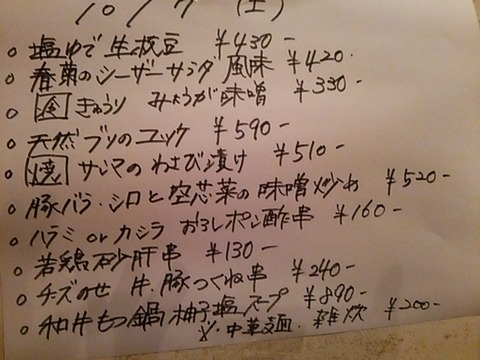 10/7 (土)
○ 塩ゆで生枝豆 ¥430-
○ 春菊のシーザーサラダ風味 ¥420-
○ 冷 きゅうり みょうが味噌 ¥330-
○ 天然ブリのユッケ ¥590-
○ 焼 サンマのわさび漬け ¥510-
○ 豚バラ・シロと空芯菜の味噌炒め ¥520-
○ ハラミ or カシラ おろしポン酢串 ¥160-
○ 若鶏砂肝串 ¥130-
○ チーズのせ 牛・豚つくね串 ¥240-
○ 和牛もつ鍋 柚子塩スープ ¥890-
※・中華麺・雑炊 ¥200-